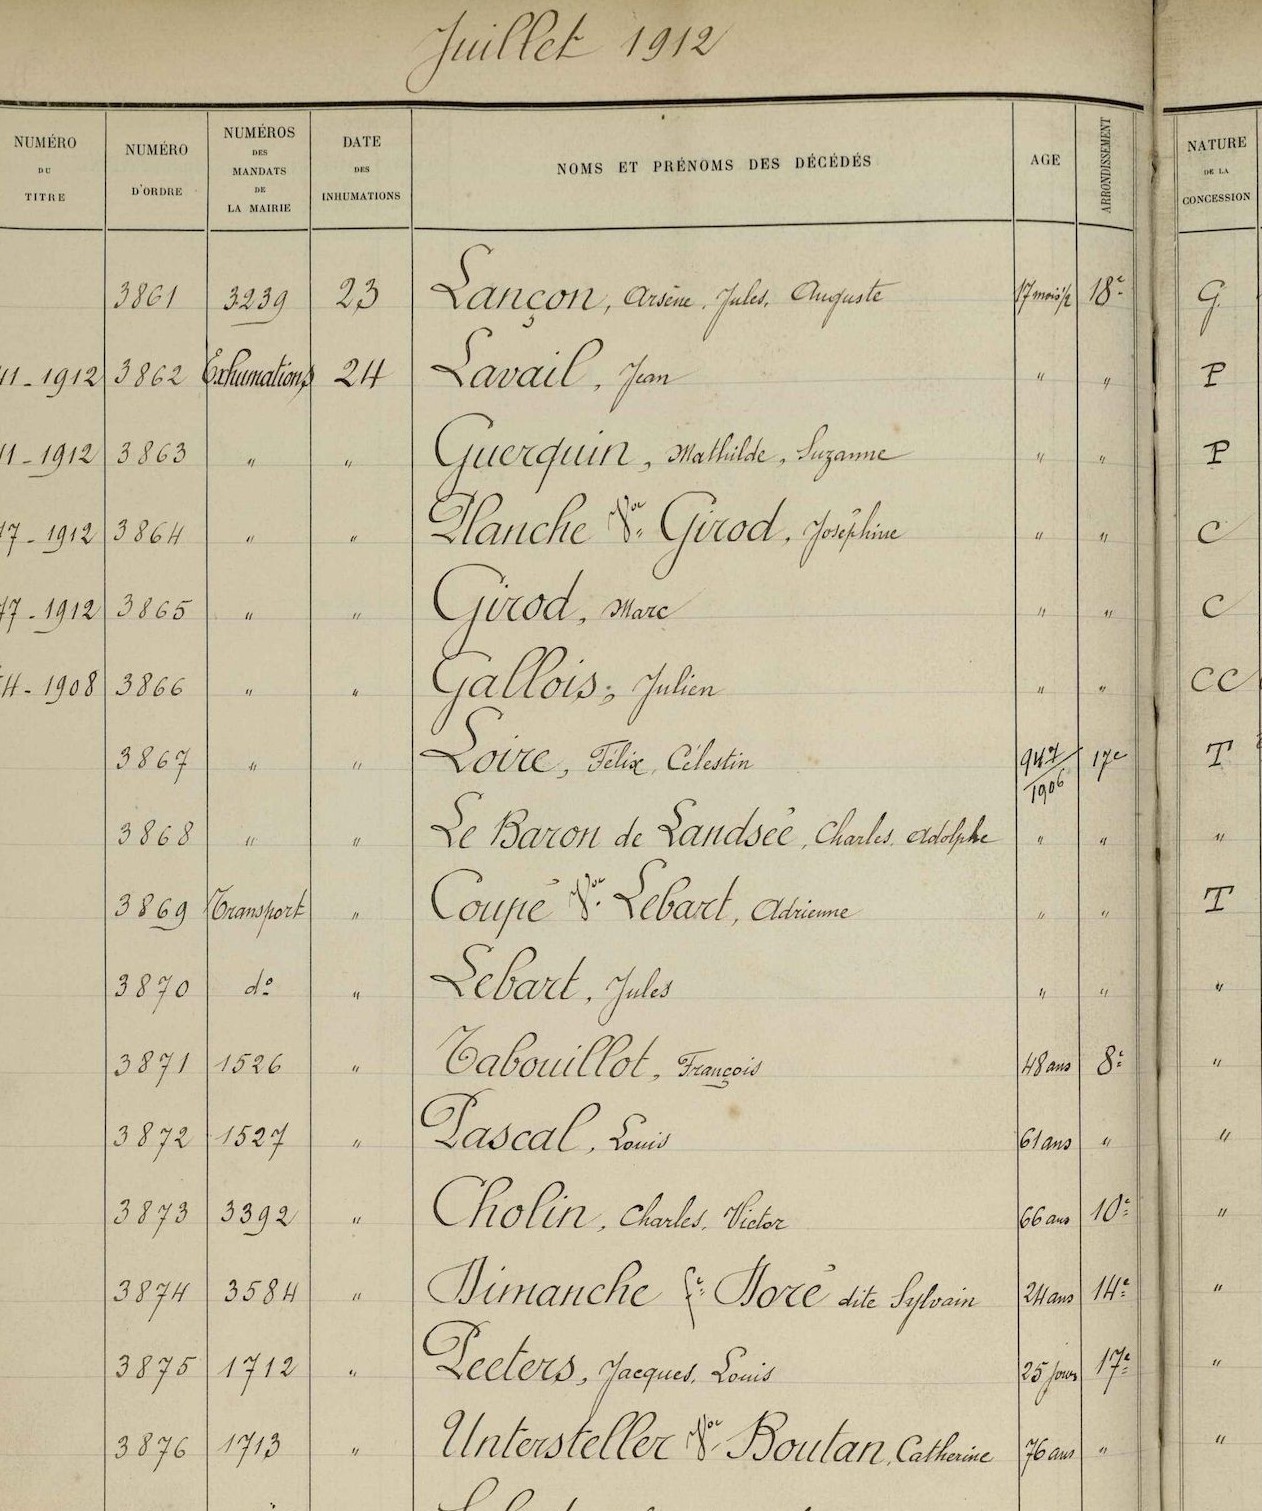 Juillet 1912
NUMÉRO DU TITRE NUMÉRO D'ORDRE NUMÉROS DES MANDATS DE LA MAIRIE DATE DES INHUMATIONS NOMS ET PRÉNOMS DES DÉCÉDÉS AGE ARRONDISSEMENT NATURE DE LA CONCESSION
3861 3239 23 Lançon, Arsène, Jules, Auguste 17 mois ½ 18e G
11-1912 3862 Exhumations 24 Lavail, Jean " " P
11-1912 3863 " " Guerquin, Mathilde, Suzanne " " P
17-1912 3864 " " Planche Vve Girod, Joséphine " " C
17-1912 3865 " " Girod, Marc " " C
4-1908 3866 " " Gallois, Julien " " CC
3867 " " Loire, Félix, Célestin 947/1906 17e T
3868 " " Le Baron de Landsée, Charles, Adolphe " " "
3869 Transport " Coupé Vve Lebart, Adrienne " " T
3870 do " Lebart, Jules " " "
3871 1526 " Tabouillot, François 48 ans 8e "
3872 1527 " Pascal, Louis 61 ans " "
3873 3392 " Cholin, Charles, Victor 66 ans 10e "
3874 3584 " Dimanche fe Doré dite Sylvain 24 ans 14e "
3875 1712 " Peeters, Jacques, Louis 25 jours 17e "
3876 1713 " Untersteller Vve Boutan, Catherine 76 ans " "